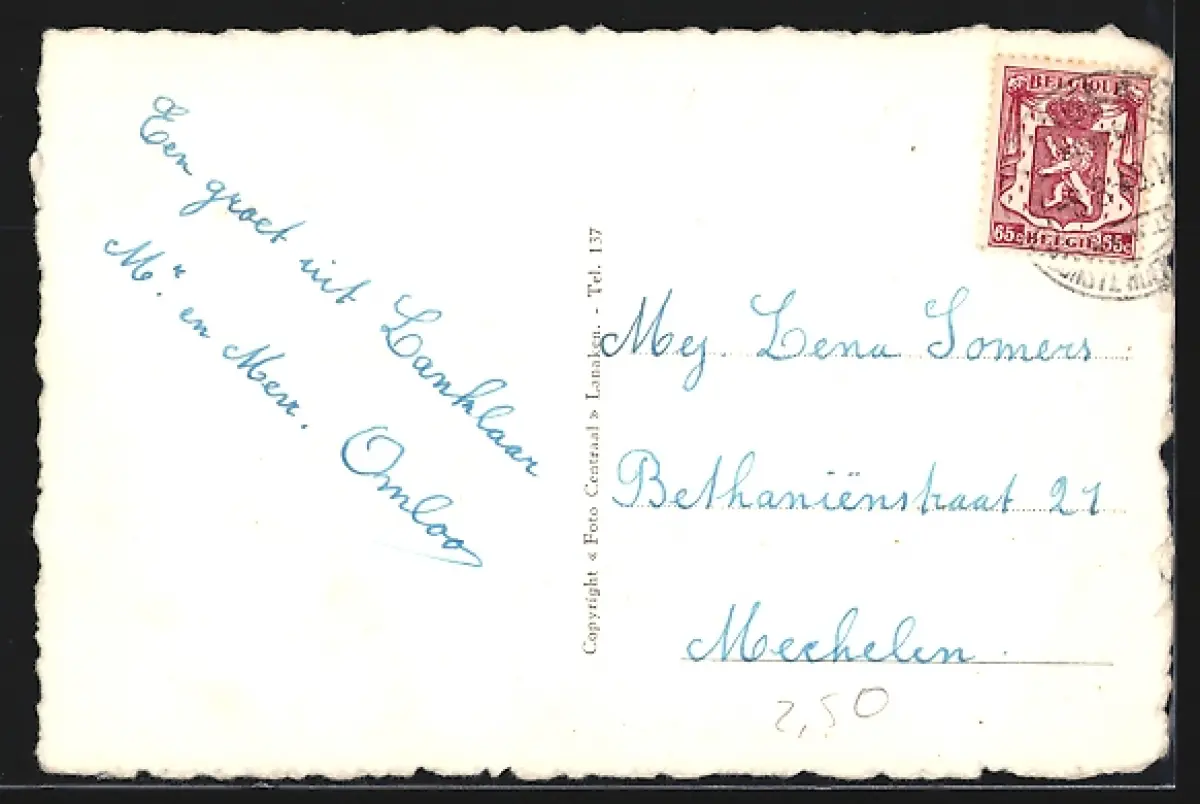 Een groet uit Lanklaar
M.r en Mevr. Omloo
Copyright « Foto Centraal » Lanaken. - Tel. 137
BELGIQUE
65c BELGIE 65c
Mej. Lena Somers
Bethaniënstraat 21
Mechelen.
2,50